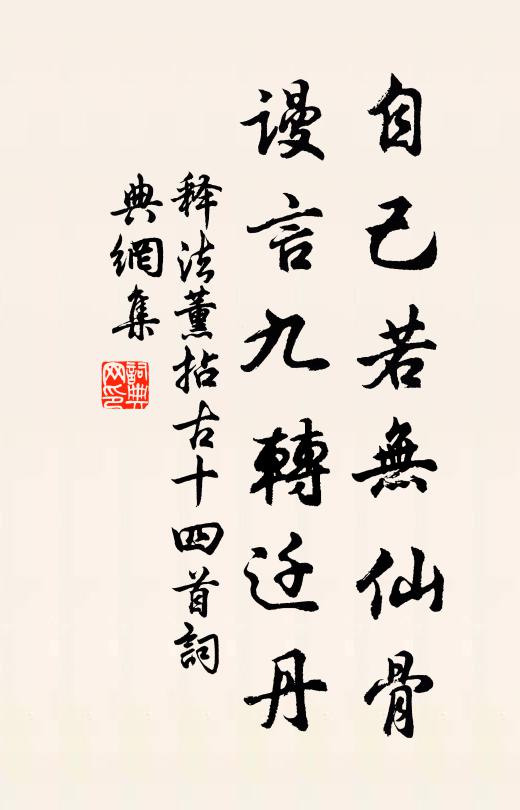 自己若無仙骨
謾言九轉还丹
释法薰拈古十四首詞
典網集
詞典
网印